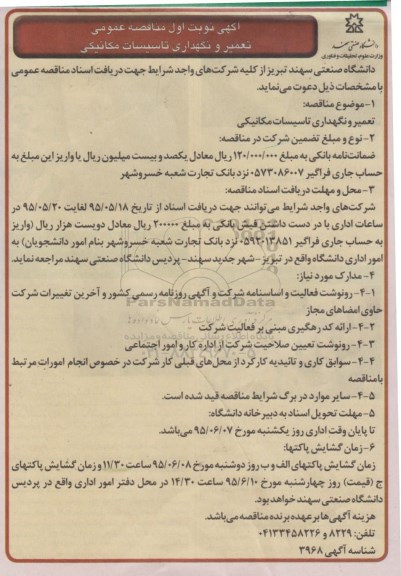 آگهی نوبت اول مناقصه عمومی
تعمیر و نگهداری تاسیسات مکانیکی
دانشگاه صنعتی سهند
وزارت علوم، تحقیقات و فناوری
دانشگاه صنعتی سهند تبریز از کلیه شرکت‌های واجد شرایط جهت دریافت اسناد مناقصه عمومی
با مشخصات ذیل دعوت می‌نماید.
۱-موضوع مناقصه:
تعمیر و نگهداری تاسیسات مکانیکی
۲-نوع و مبلغ تضمین شرکت در مناقصه:
ضمانت‌نامه بانکی به مبلغ ۱۲۰/۰۰۰/۰۰۰ ریال معادل یکصد و بیست میلیون ریال یا واریز این مبلغ به
حساب جاری فراگیر ۰۵۷۳۰۸۶۰۰۷ نزد بانک تجارت شعبه خسروشهر
۳-محل و مهلت دریافت اسناد مناقصه:
شرکت‌های واجد شرایط می‌توانند جهت دریافت اسناد از تاریخ ۹۵/۰۵/۱۸ لغایت ۹۵/۰۵/۲۰ در
ساعات اداری با در دست داشتن فیش بانکی به مبلغ ۲۰۰۰۰۰ ریال معادل دویست هزار ریال (واریز
به حساب جاری فراگیر ۰۵۹۲۰۱۳۸۵۱ نزد بانک تجارت شعبه خسروشهر بنام امور دانشجویان) به
امور اداری دانشگاه واقع در تبریز - شهر جدید سهند- پردیس دانشگاه صنعتی سهند مراجعه نماید.
۴- مدارک مورد نیاز:
۴-۱- رونوشت فعالیت و اساسنامه شرکت و آگهی روزنامه رسمی کشور و آخرین تغییرات شرکت
حاوی امضاهای مجاز
ParsNamadData
۴-۲- ارائه کد رهگیری مبنی بر فعالیت شرکت
۴-۳- رونوشت تعیین صلاحیت شرکت از اداره کار و امور اجتماعی
۴-۴- سوابق کاری و تائیدیه کارکرد از محل‌های قبلی کار شرکت در خصوص انجام امورات مرتبط
با مناقصه
۴-۵- سایر موارد در برگ شرایط مناقصه قید شده است.
۵- مهلت تحویل اسناد به دبیرخانه دانشگاه:
تا پایان وقت اداری روز یکشنبه مورخ ۹۵/۰۶/۰۷ می‌باشد.
۶-زمان گشایش پاکتها:
زمان گشایش پاکتهای الف و ب روز دوشنبه مورخ ۹۵/۰۶/۰۸ ساعت ۱۱/۳۰ و زمان گشایش پاکتهای
ج (قیمت) روز چهارشنبه مورخ ۹۵/۶/۱۰ ساعت ۱۴/۳۰ در محل دفتر امور اداری واقع در پردیس
دانشگاه صنعتی سهند خواهد بود.
هزینه آگهی‌ها بر عهده برنده مناقصه می‌باشد.
تلفن: ۸۲۲۹ و ۰۴۱۳۳۴۵۸۲۲۶
شناسه آگهی ۳۹۶۸